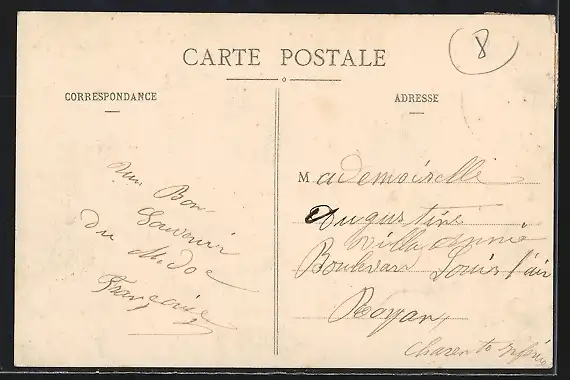 CARTE POSTALE
8
CORRESPONDANCE
un Bon
Souvenir
du Médoc
Françoise
ADRESSE
Mademoiselle
Augustine
villa Annie
Boulevar Louis
Royan
Charente Inferie